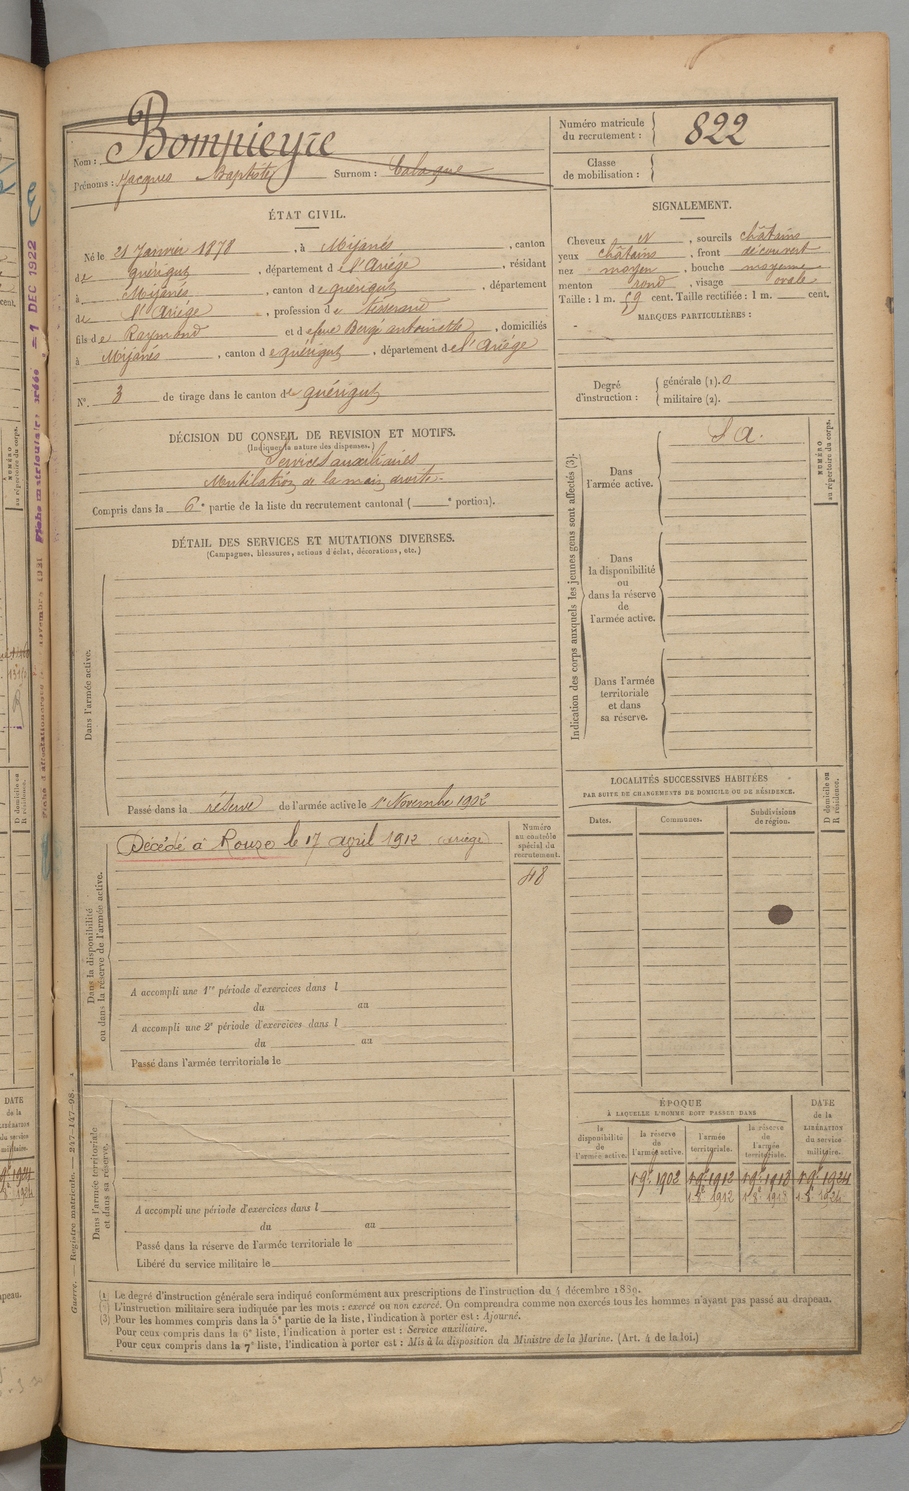 Nom : Bompieyre
Prénoms : Jacques Baptiste Surnom : Calague
Numéro matricule du recrutement : 822
Classe de mobilisation :
ÉTAT CIVIL.
Né le 21 Janvier 1878, à Mijanès, canton
de Quérigut, département de l'Ariége, résidant
à Mijanès, canton de Quérigut, département
de l'Ariége, profession de Tisserand
fils de Raymond et de feue Bergé antoinette, domiciliés
à Mijanès, canton de Quérigut, département de l'Ariége
N° 3 de tirage dans le canton de Quérigut
SIGNALEMENT.
Cheveux N, sourcils châtains
yeux châtains, front découvert
nez moyen, bouche moyenne
menton rond, visage ovale
Taille : 1 m. 59 cent. Taille rectifiée : 1 m. cent.
MARQUES PARTICULIÈRES :
Degré d'instruction : générale (1). 0
militaire (2).
DÉCISION DU CONSEIL DE REVISION ET MOTIFS.
(Indiquer la nature des dispenses.)
Services auxiliaires
Mutilation de la main droite.
Compris dans la 6e partie de la liste du recrutement cantonal ( e portion).
DÉTAIL DES SERVICES ET MUTATIONS DIVERSES.
(Campagnes, blessures, actions d'éclat, décorations, etc.)
Dans l'armée active.
Passé dans la réserve de l'armée active le 1er Novembre 1902
Indication des corps auxquels les jeunes gens sont affectés (3).
NUMÉRO au répertoire du corps.
Dans l'armée active.
S A.
Dans la disponibilité ou dans la réserve de l'armée active.
Dans l'armée territoriale et dans sa réserve.
Dans la disponibilité ou dans la réserve de l'armée active.
Décédé à Rouze le 17 avril 1912 (Ariège)
Numéro au contrôle spécial du recrutement.
48
A accompli une 1re période d'exercices dans l
du au
A accompli une 2e période d'exercices dans l
du au
Passé dans l'armée territoriale le
LOCALITÉS SUCCESSIVES HABITÉES
PAR SUITE DE CHANGEMENTS DE DOMICILE OU DE RÉSIDENCE.
Dates. Communes. Subdivisions de région. D domicile ou R résidence.
Dans l'armée territoriale et dans sa réserve.
A accompli une période d'exercices dans l
du au
Passé dans la réserve de l'armée territoriale le
Libéré du service militaire le
ÉPOQUE
À LAQUELLE L'HOMME DOIT PASSER DANS
la disponibilité de l'armée active. la réserve de l'armée active. l'armée territoriale. la réserve de l'armée territoriale. DATE de la LIBÉRATION du service militaire.
1 9e 1902 1 9e 1912 1 9e 1918 1 9e 1924
1912 1918 1924
Guerre. — Registre matricule. — 247-147-98.
(1) Le degré d'instruction générale sera indiqué conformément aux prescriptions de l'instruction du 4 décembre 1889.
(2) L'instruction militaire sera indiquée par les mots : exercé ou non exercé. On comprendra comme non exercés tous les hommes n'ayant pas passé au drapeau.
(3) Pour les hommes compris dans la 5e partie de la liste, l'indication à porter est : Ajourné.
Pour ceux compris dans la 6e liste, l'indication à porter est : Service auxiliaire.
Pour ceux compris dans la 7e liste, l'indication à porter est : Mis à la disposition du Ministre de la Marine. (Art. 4 de la loi.)